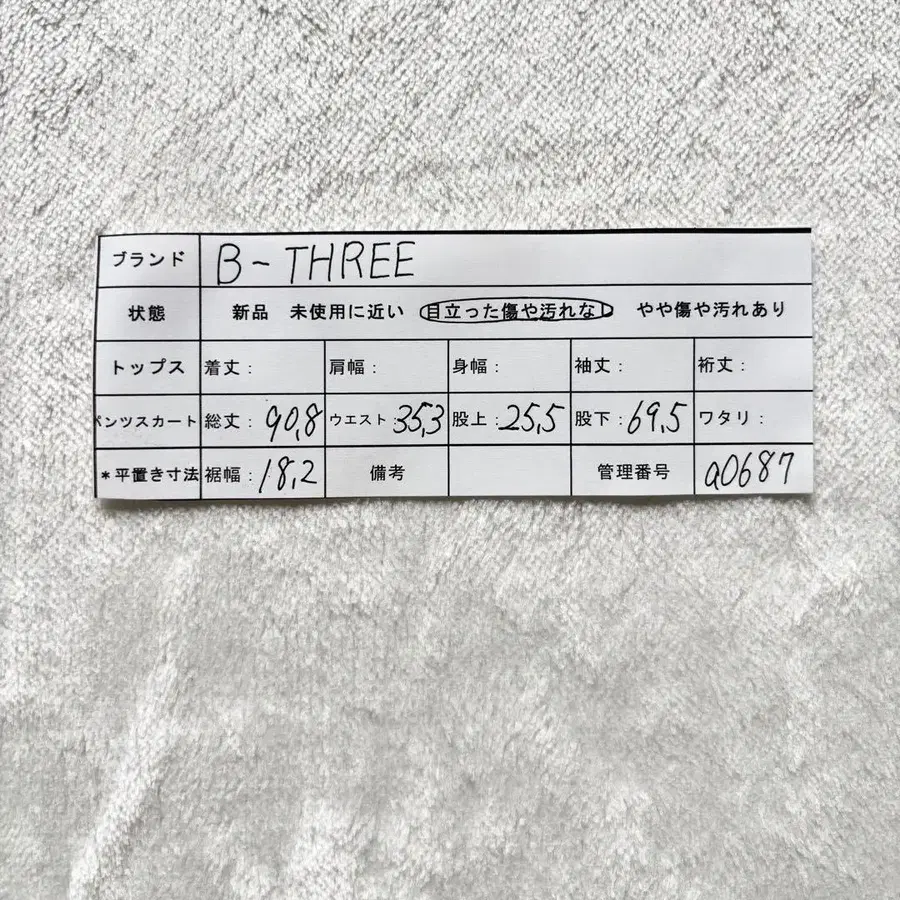 ブランド B-THREE
状態 新品 未使用に近い 目立った傷や汚れなし やや傷や汚れあり
トップス 着丈: 肩幅: 身幅: 袖丈: 裄丈:
パンツスカート 総丈: 90,8 ウエスト 35,3 股上: 25,5 股下: 69,5 ワタリ:
*平置き寸法 裾幅: 18,2 備考 管理番号 a0687